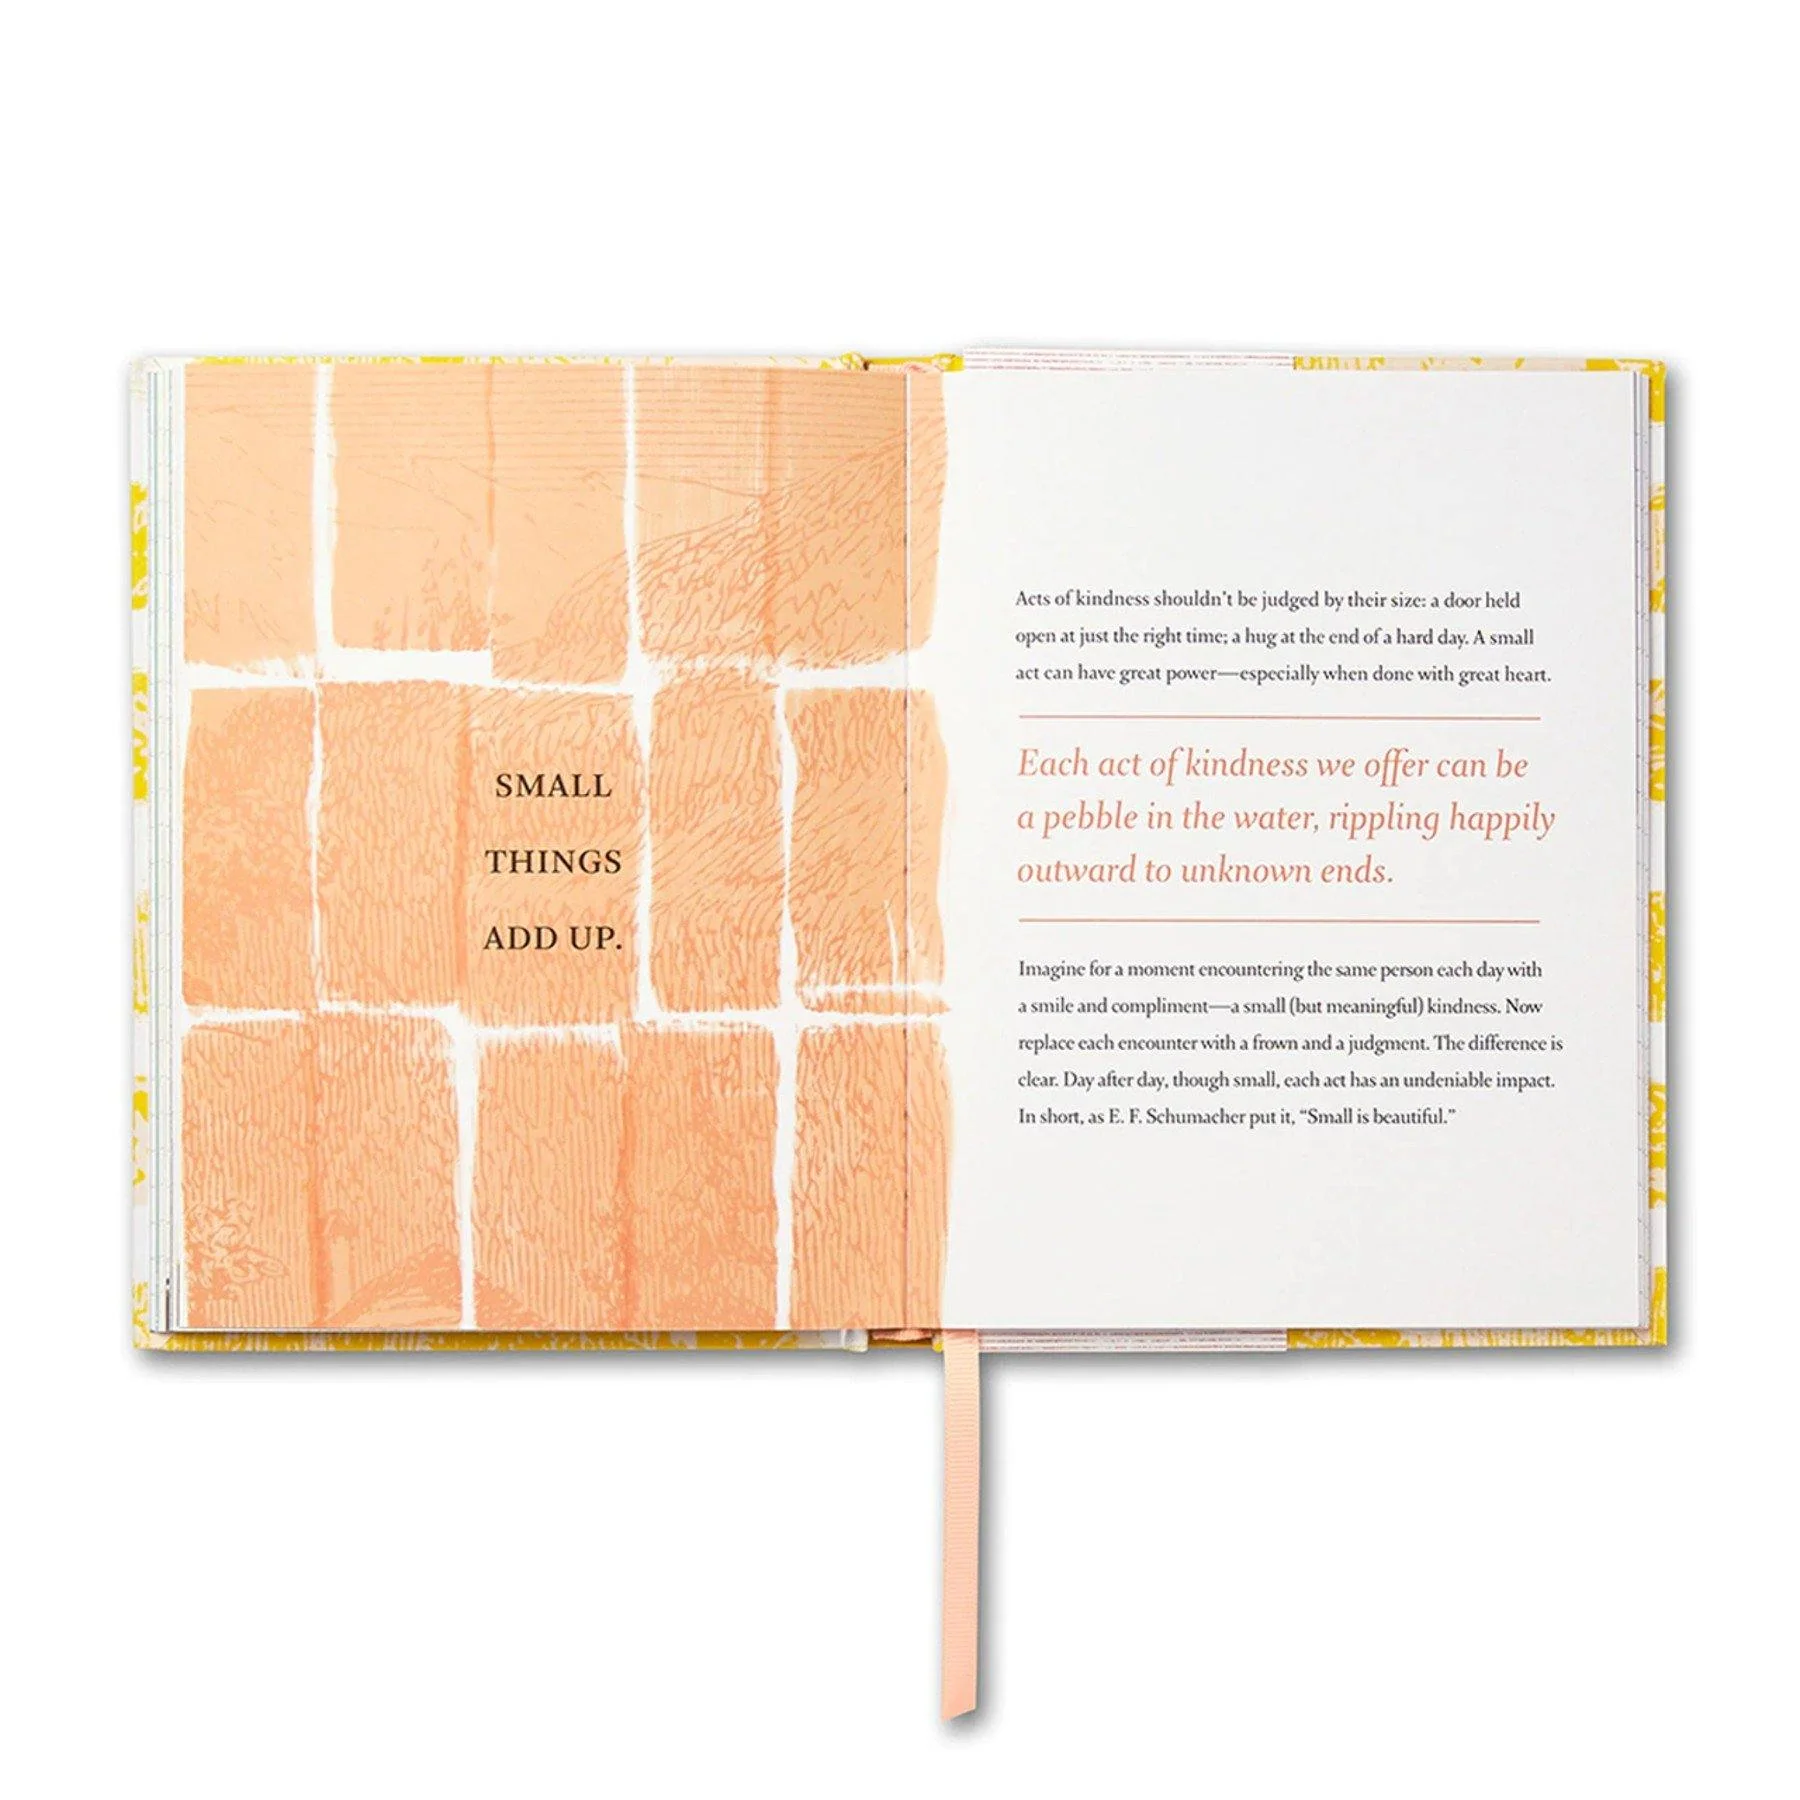 SMALL
THINGS
ADD UP.
Acts of kindness shouldn't be judged by their size: a door held
open at just the right time; a hug at the end of a hard day. A small
act can have great power—especially when done with great heart.
Each act of kindness we offer can be
a pebble in the water, rippling happily
outward to unknown ends.
Imagine for a moment encountering the same person each day with
a smile and compliment—a small (but meaningful) kindness. Now
replace each encounter with a frown and a judgment. The difference is
clear. Day after day, though small, each act has an undeniable impact.
In short, as E. F. Schumacher put it, “Small is beautiful.”